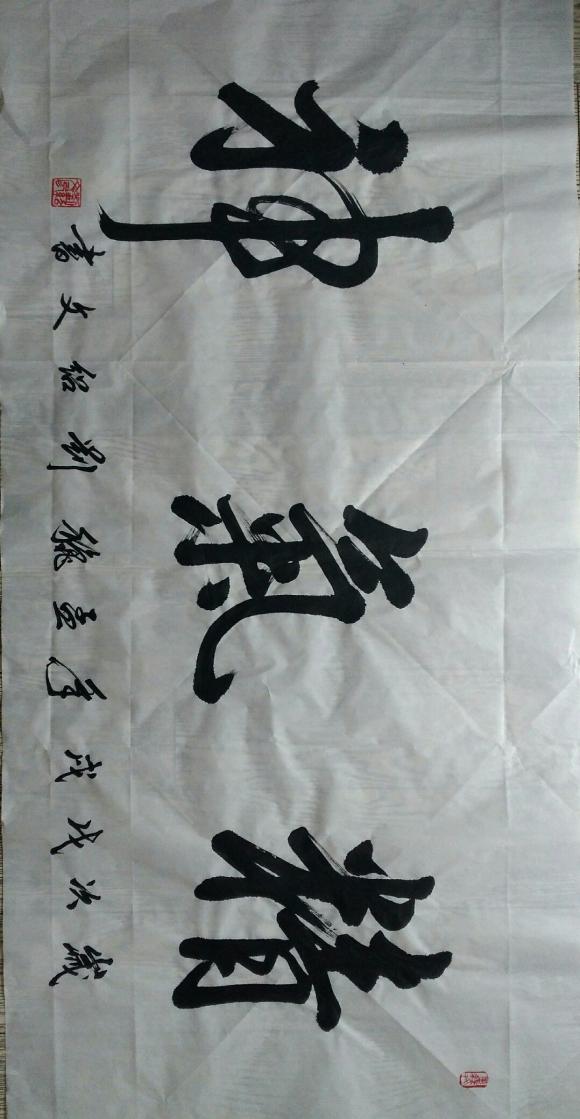 精氣神
歲次戊戌年孟穐劉紹文書